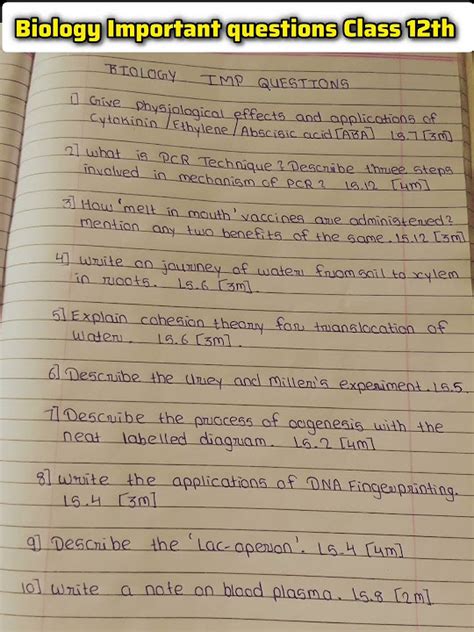 Biology Important questions Class 12th
BIOLOGY IMP QUESTIONS
1] Give physiological effects and applications of
Cytokinin / Ethylene / Abscisic acid [ABA] L5.7 [3m]
2] What is PCR Technique? Describe three steps
involved in mechanism of PCR? L5.12 [4m]
3] How 'melt in mouth' vaccines are administered?
mention any two benefits of the same. L5.12 [3m]
4] Write on journey of water from soil to xylem
in roots. L5.6 [3m].
5] Explain cohesion theory for translocation of
water. L5.6 [3m].
6] Describe the Urey and Miller's experiment. L5.5
7] Describe the process of oogenesis with the
neat labelled diagram. L5.2 [4m]
8] Write the applications of DNA Fingerprinting.
L5.4 [3m]
9] Describe the 'Lac-operon'. L5.4 [4m]
10] Write a note on blood plasma. L5.8 [2m]